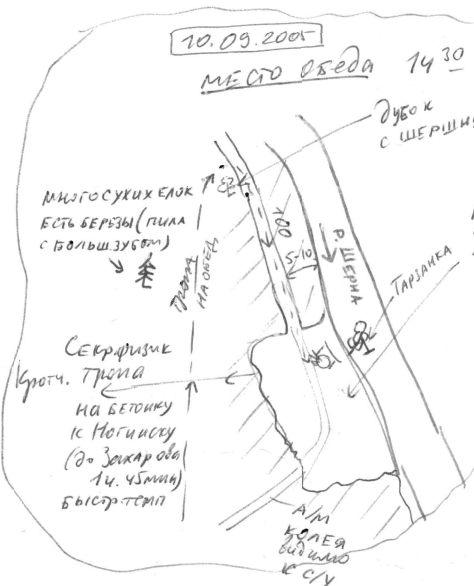 10.09.2005
МЕСТО ОБЕДА 14 30
ДУБОК
С ШЕРШН
МНОГО СУХИХ ЕЛОК
ЕСТЬ БЕРЕЗЫ (ПИЛА
С БОЛЬШ. ЗУБОМ)
ТРОПА
НА ОБЕД
100
5-10
Р. ШЕРНА
ТАРЗАНКА
СЕКР. ФИЗИК
КРОТЧ. ТРОПА
НА БЕТОНКУ
К НОГИНСКУ
(до Захарова
1 ч. 45 мин)
БЫСТР. ТЕМП
А/М
КОЛЕЯ
ВИДИМО
К С/У